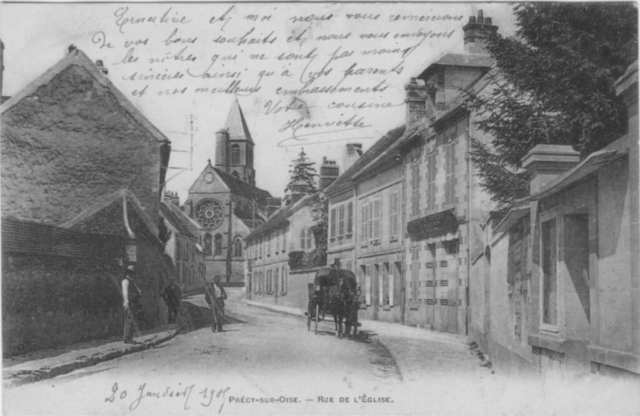 Ernestine et moi nous vous remercions
de vos bons souhaits et nous vous envoyons
les nôtres qui ne sont pas moins
sincères ainsi qu'à vos parents
et nos meilleurs embrassements
Votre cousine
Henriette
20 Janvier 1905
PRÉCY-SUR-OISE. — RUE DE L'ÉGLISE.